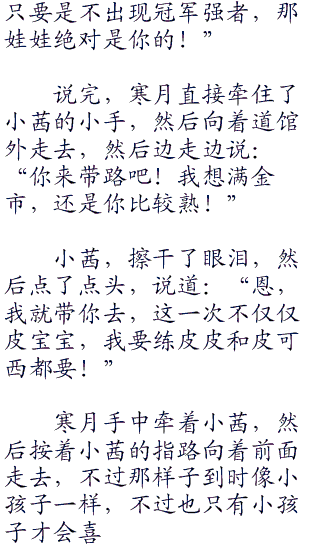 只要是不出现冠军强者，那
娃娃绝对是你的！”
说完，寒月直接牵住了
小茜的小手，然后向着道馆
外走去，然后边走边说：
“你来带路吧！我想满金
市，还是你比较熟！”
小茜，擦干了眼泪，然
后点了点头，说道：“恩，
我就带你去，这一次不仅仅
皮宝宝，我要练皮皮和皮可
西都要！”
寒月手中牵着小茜，然
后按着小茜的指路向着前面
走去，不过那样子到时像小
孩子一样，不过也只有小孩
子才会喜